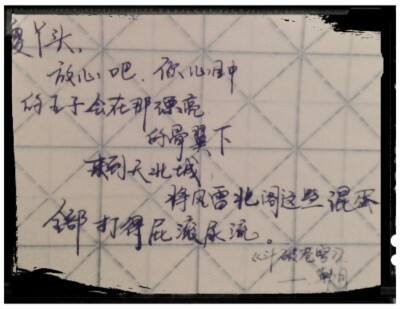 丫头,
放心吧、你心中
的王子会在那漂亮
的骨翼下
来到天北城,
将风雷北阁这些混蛋
全部打得屁滚尿流。
《斗破苍穹》
——